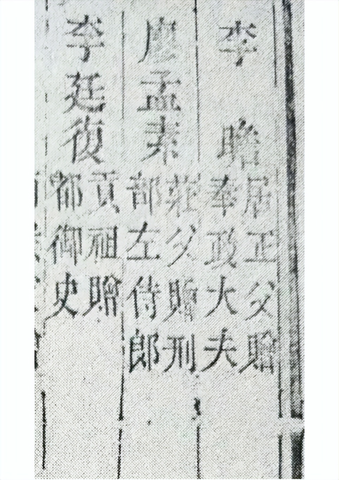 李瞻
居正父贈
奉政大夫
廖孟素
莊父贈刑
部左侍郎
李廷復
貢祖贈
都御史